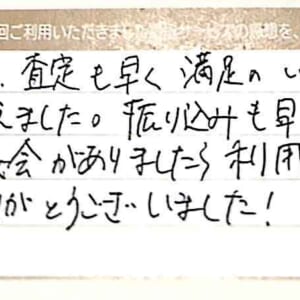 回ご利用いただきました
サービスの感想を、
、査定も早く 満足のい
えました。振り込みも早
会がありましたら利用
がとうございました!